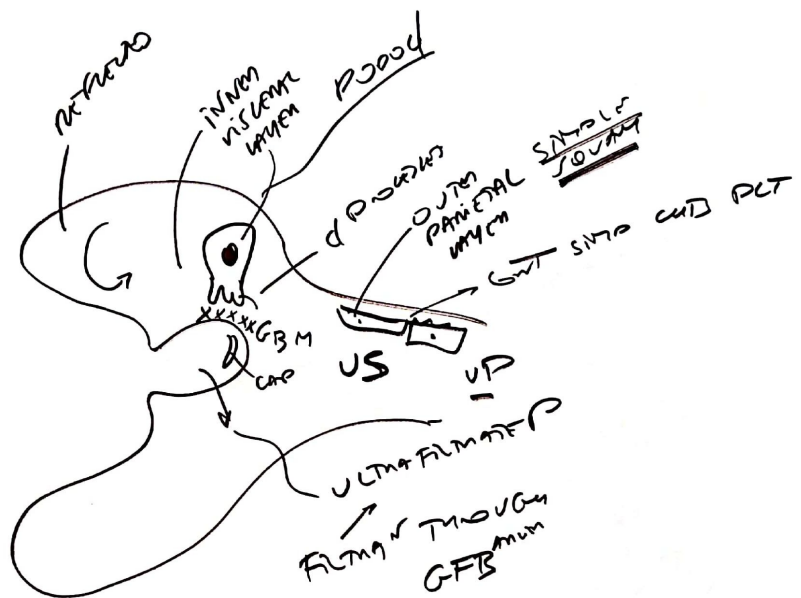 REFLECTD
INNER
VISCERAL
LAYER
PODOCY
PROCESSES
OUTER
PARIETAL
LAYER
SIMPLE
SQUAM
SIMP CUB PCT
XXXXX GBM
CAP
US
UP
ULTRAFILTRATE P
FILTRAN THROUGH
GFB